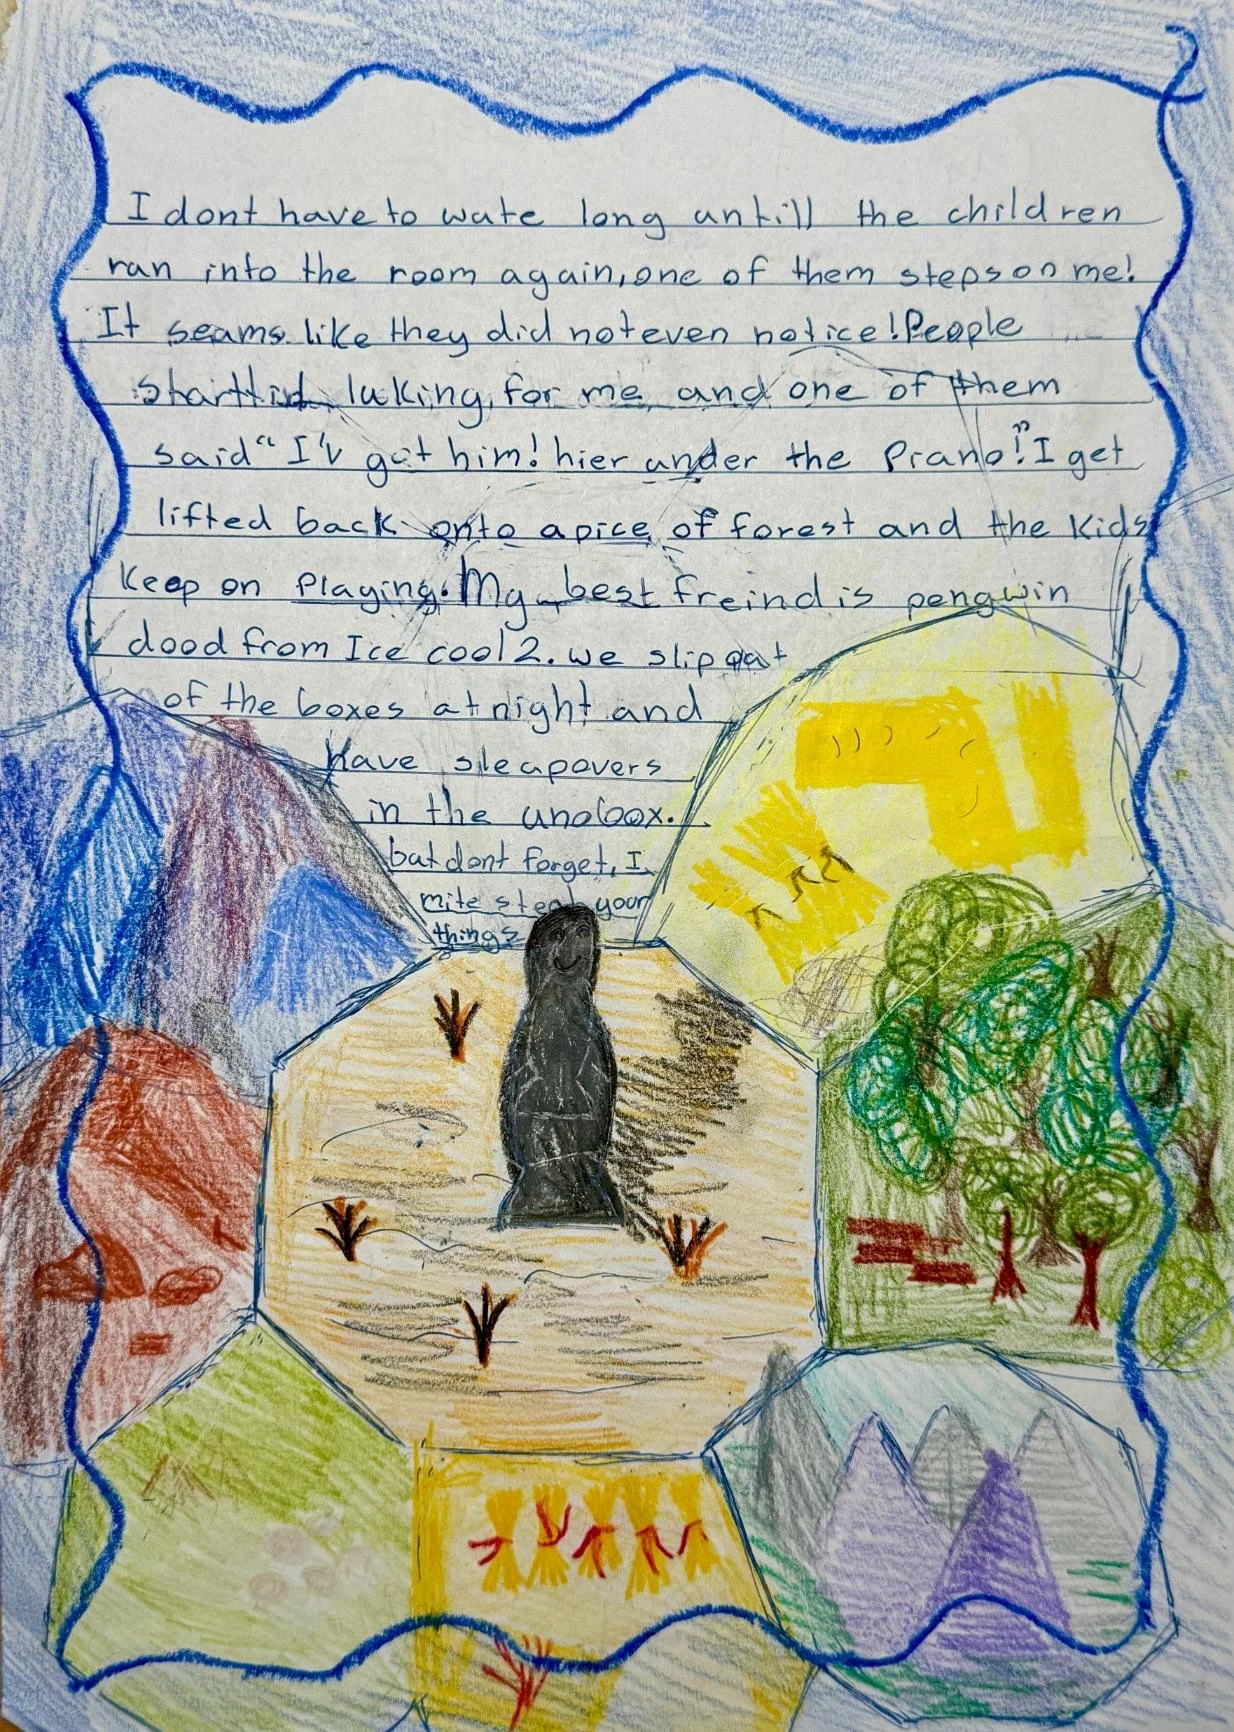 I dont have to wate long untill the children
ran into the room again, one of them steps on me!
It seams like they did not even notice! People
starttid luking, for me and one of them
said “I'v got him! hier under the Piano!” I get
lifted back onto a pice of forest and the Kids
Keep on Playing. My best freind is pengwin
dood from Ice cool 2. we slip out
of the boxes at night and
have sleapovers
in the unobox.
but dont forget, I
mite steal your
things